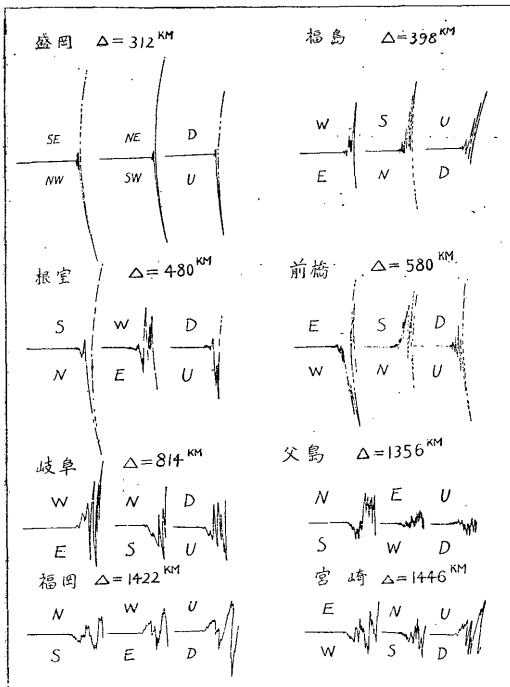 盛岡 Δ=312KM
SE NE D
NW SW U
福島 Δ=398KM
W S U
E N D
根室 Δ=480KM
S W D
N E U
前橋 Δ=580KM
E S D
W N U
岐阜 Δ=814KM
W N D
E S U
父島 Δ=1356KM
N E U
S W D
福岡 Δ=1422KM
N W U
S E D
宮崎 Δ=1446KM
E N U
W S D